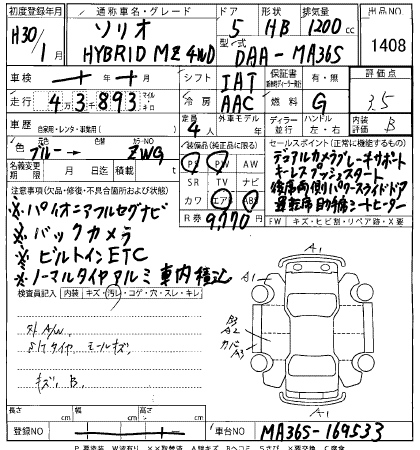 初度登録年月 通称車名・グレード ドア 形状 排気量 出品NO
H30/1 ソリオ HYBRID MZ 4WD 5 HB 1200cc 1408
型式 DAA-MA36S
車検 年 月 シフト IAT 保証書 有・無 評価点
走行 43千893 マイル キロ 冷房 AAC 燃料 G 3.5
車歴 自家用・レンタ・事業用( ) 定員 4人 外車モデル ディーラー 並行 ハンドル 左・右 内装 B
色 ブルー→ カラーNO ZWG 装備品(純正品に限る) セールスポイント(正常に機能するもの)
名義変更期限 月 日 積載 t PS PW AW デュアルカメラブレーキサポート
注意事項(欠品・修復・不具合箇所および状態) SR TV ナビ キーレスプッシュスタート
※パイオニアフルセグナビ カワ エア AB 後席両側パワースライドドア
※バックカメラ R券 9,770 運転席助手席シートヒーター
FW キズ・ヒビ割・リペア跡・X要
※ビルトインETC
※ノーマルタイヤアルミ車内積込
検査員記入 内装 キズ・汚レ・コゲ・穴・スレ・キレ
外A/W
タイヤ ホールキズ
キズ、B
A1
A1
A2
カバ A3
A1
長さ cm 幅 cm 高さ cm
登録NO 車台NO MA36S-169533